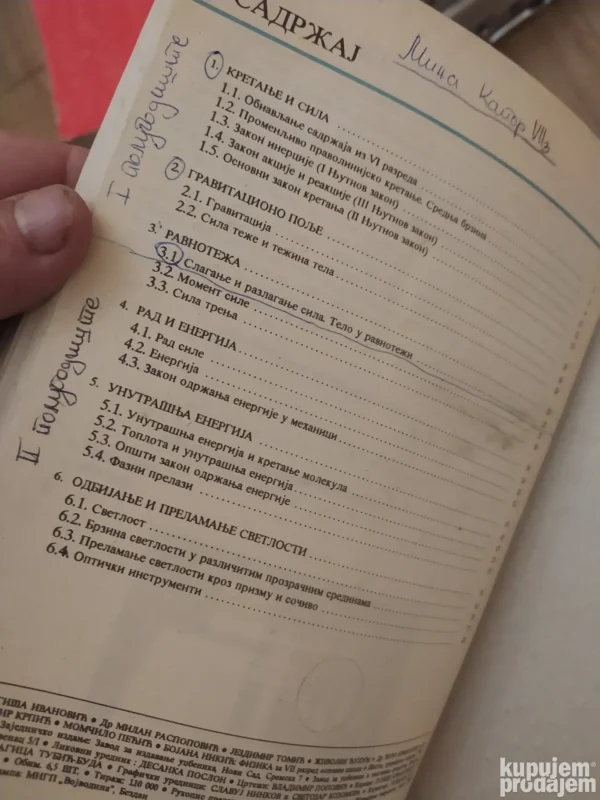 САДРЖАЈ
Мина Капор VII3
I полугодиште
1. КРЕТАЊЕ И СИЛА
1.1. Обнављање садржаја из VI разреда
1.2. Променљиво праволинијско кретање. Средња брзина
1.3. Закон инерције (I Њутнов закон)
1.4. Закон акције и реакције (III Њутнов закон)
1.5. Основни закон кретања (II Њутнов закон)
2. ГРАВИТАЦИОНО ПОЉЕ
2.1. Гравитација
2.2. Сила теже и тежина тела
3. РАВНОТЕЖА
3.1. Слагање и разлагање сила. Тело у равнотежи
3.2. Момент силе
3.3. Сила трења
II полугодиште
4. РАД И ЕНЕРГИЈА
4.1. Рад силе
4.2. Енергија
4.3. Закон одржања енергије у механици
5. УНУТРАШЊА ЕНЕРГИЈА
5.1. Унутрашња енергија и кретање молекула
5.2. Топлота и унутрашња енергија
5.3. Општи закон одржања енергије
5.4. Фазни прелази
6. ОДБИЈАЊЕ И ПРЕЛАМАЊЕ СВЕТЛОСТИ
6.1. Светлост
6.2. Брзина светлости у различитим прозрачним срединама
6.3. Преламање светлости кроз призму и сочиво
6.4. Оптички инструменти
ИВАНОВИЋ • Др МИЛАН РАСПОПОВИЋ • ЈЕЗДИМИР ТОМИЋ •
КРПИЋ • МОМЧИЛО ПЕЈИЋ • БОЈАНА НИКИЋ: ФИЗИКА за VII разред
Заједничко издање: Завод за издавање уџбеника, Нови Сад,
5/I • Ликовни уредник: ДЕСАНКА ПОСЛОН • Цртежи: ВЛАДИМИР ПОПОВИЋ •
ТУБИЋ-БУДА • Графички уредници: СЛАВУЈ НИНКОВ и
• Обим. 6,5 ШТ. • Тираж: 110 000 •
МИГП „Војводина", Бездан
kupujem
prodajem